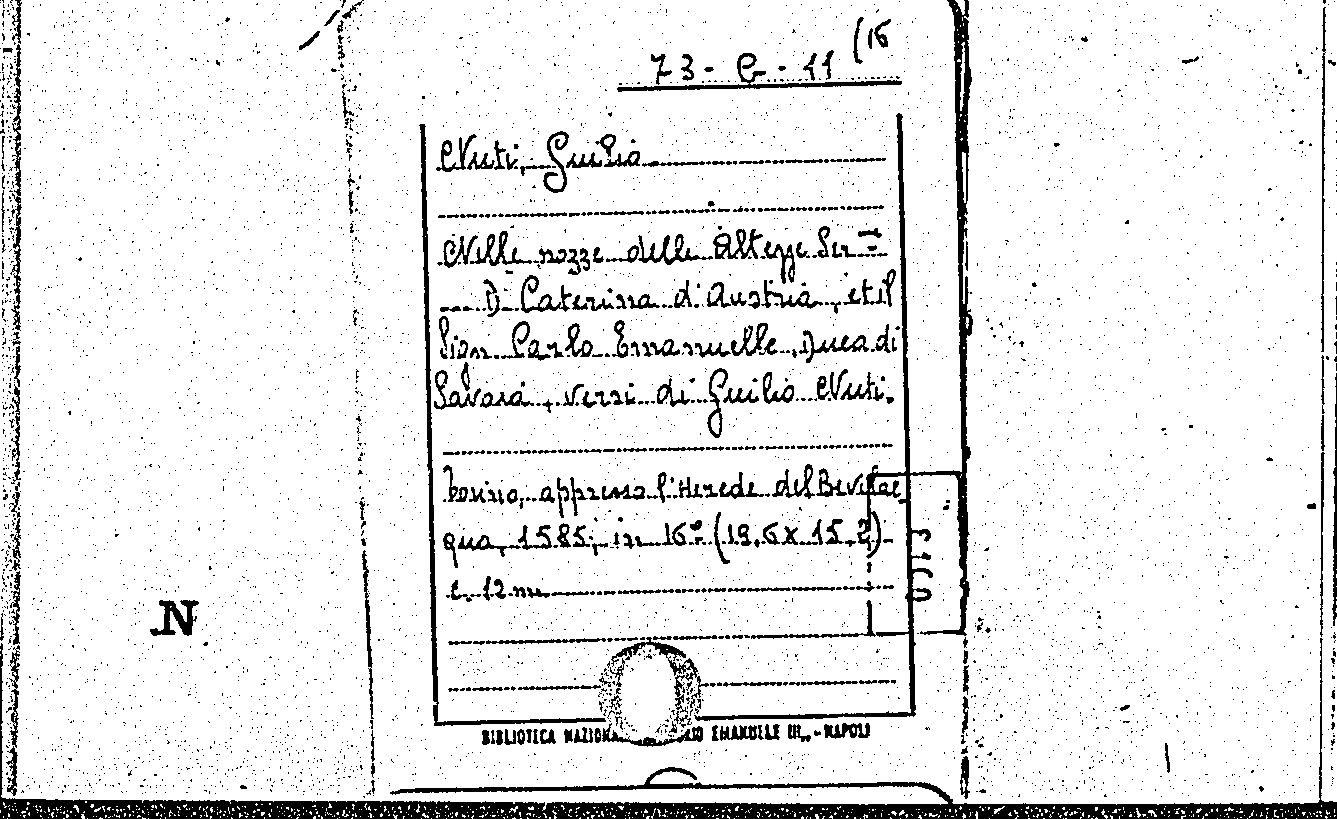 73-G-11 (16
Nuti, Giulio
Nelle nozze delle Altezze Ser.
D. Caterina d'Austria, et il
Sign. Carlo Emanuelle, Duca di
Savoia, versi di Giulio Nuti.
Torino, appresso l'Herede del Bevilac
qua, 1585; in 16º (19,6x15,2)
c. 12 nn.
N
BIBLIOTECA NAZIONA IO EMANUELE III,, - NAPOLI